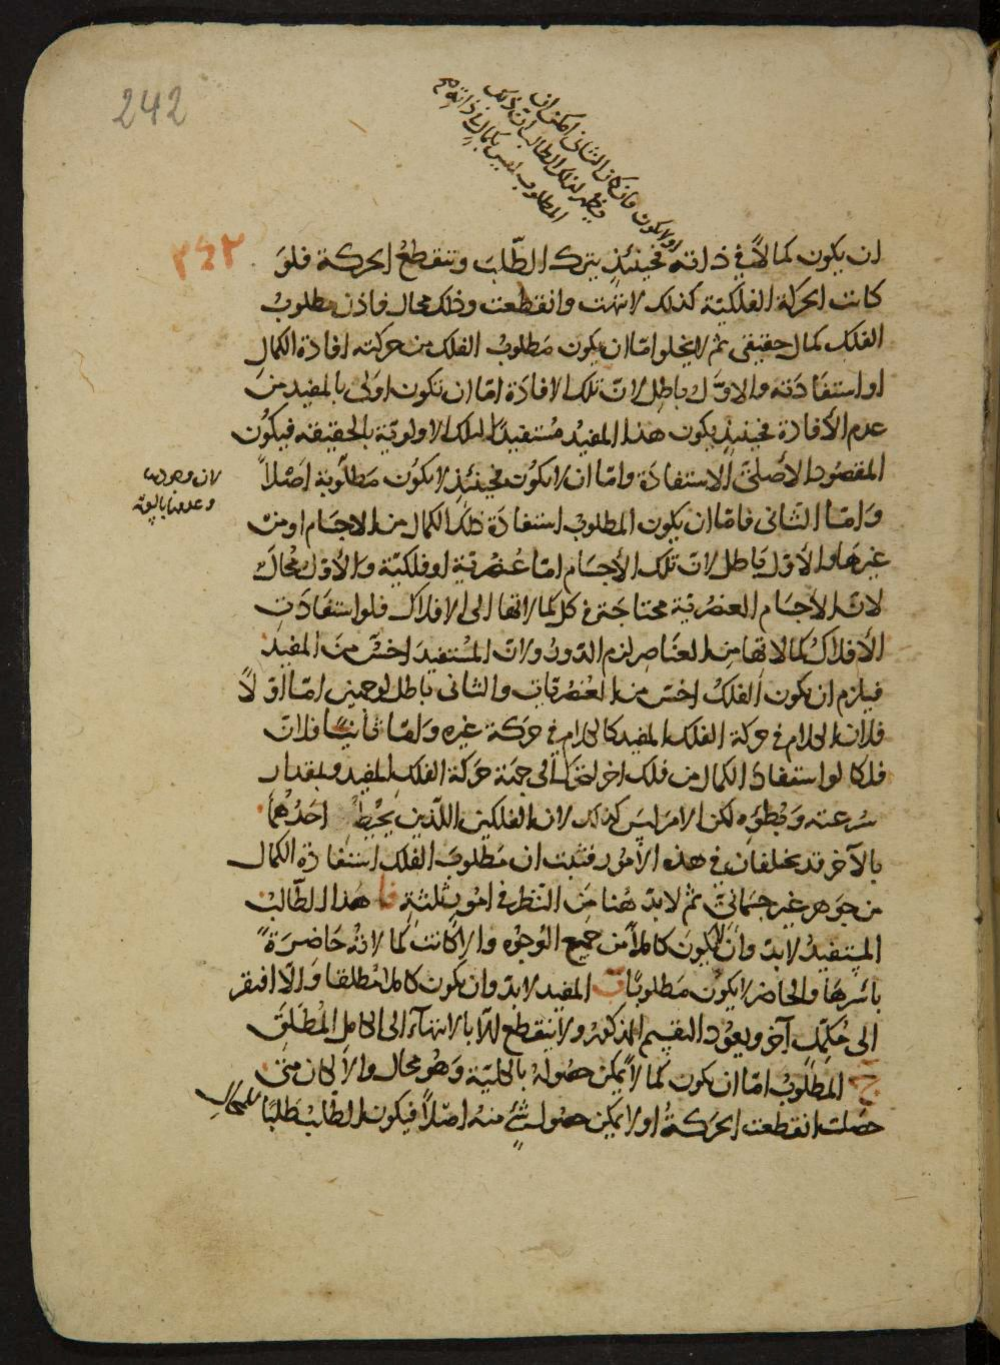 242
او لا يكون فان كان الثانى امكن ان
فيظهر لذلك الطالب ان ذلك
المطلوب ليس بكمال فى ذاته
٢٤٢
ان يكون كمالاً فى ذاته فحينئذٍ يترك الطّلب وتنقطعُ الحركة فلوَ
كانت الحركة الفلكيّة كذلك لانتهت وانقطعت وذلك محال فاذن مطلوبُ
الفلك كمال حقيقى ثم لا يخلوا امّا ان يكون مَطلوبُ الفلك من حركته افادة الكمالِ
او استفادَته والاوّل باطِل لانّ تلك الافادَة امّا ان تكون اولى بالمفيد من
عدم الأفادة فحينئذٍ يكون هذا المفيدُ مُستفيدًا لتلك الاولويّة بالحقيقه فيكُون
المقصود الأصلىّ الاستفادَة وامّا ان لا يكُون فحينئذٍ لا يكُون مَطلُوبة اصْلاً
لان وجودها
وعدمها بالسوية
وَامّا الثانى فامّا ان يكون المطلوبُ استفادَة ذلك الكمال من الاجسَام او منْ
غيرهَا والاوّل باطل لانّ تلك الأجسَام امّا عُنصُريّة او فلكيّة والأوّل مُحالٌ
لانّ الاجسَام العنصُريّة محتاجَة فى كل كمالاتها الى الافلاك فلو استفادَتِ
الأفلاكُ كمالاتها من العناصِر لزم الدّورُ ولانّ المُستفيدَ اخسّ منَ المفيد
فيلزم ان يكون الفلكُ اخسّ من العُنصُريّات والثانى باطل لوجهين امّا اوّلاً
فلانّ الكلام فى حركة الفلك المفيد كالكلام فى حرَكة غيره وَامّا ثانيًا فلانّ
فلكا لو استفادَ الكمال من فلك اخر لتحرّك الى جهَة حرَكة الفلك المفيد وبمقدار
سُرعته وَبُطؤه لكن الامر ليسَ كذلك لانّ الفلكين اللذين يحيطُ احَدُهمَا
بالآخر قد يختلفان فى هذه الأمُور فثبت ان مَطلوبَ الفلك استفادَة الكمال
من جَوهرٍ غير جسْمانىّ ثم لابدّ هُنا منَ النّظر فى امُورٍ ثلثةٍ فا هَذا الطّالبُ
المستفيدُ لابدّ وَان لا يكون كاملاً من جميع الوُجُوه والاّ كانت كمالاتهُ حَاضرَةً
باسْرهَا والحاضر لا يكُون مَطلوبًا ب المفيد لابدّ وان يكون كاملا مُطلقا وَالاّ افتقر
الى مُكمّل آخر ويعوُد التقسيم المذكُور ولا ينقطع الاّ بالانتهآء الى الكامل المُطلق
ج المطلُوبُ امّا ان يكون كمالاً يُمكن حصُولهُ بالكليّة وَهُو محال والاّ لكان متىَ
حصَلت انقطعت الحرَكةُ او لا يمكن حصُول شئ منهُ اصْلاً فيكون الطّلبُ طَلبًا للمحال